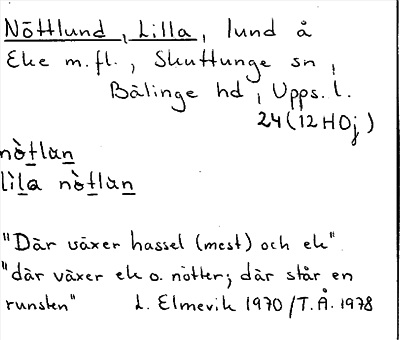 Nöttlund, Lilla, lund å
Eke m.fl., Skuttunge sn,
Bälinge hd, Upps. l.
24(12HOj)
nòtlun
lìla nòtlun
"Där växer hassel (mest) och ek"
"där växer ek o. nötter; där står en
runsten" L. Elmevik 1970/T.Å. 1978